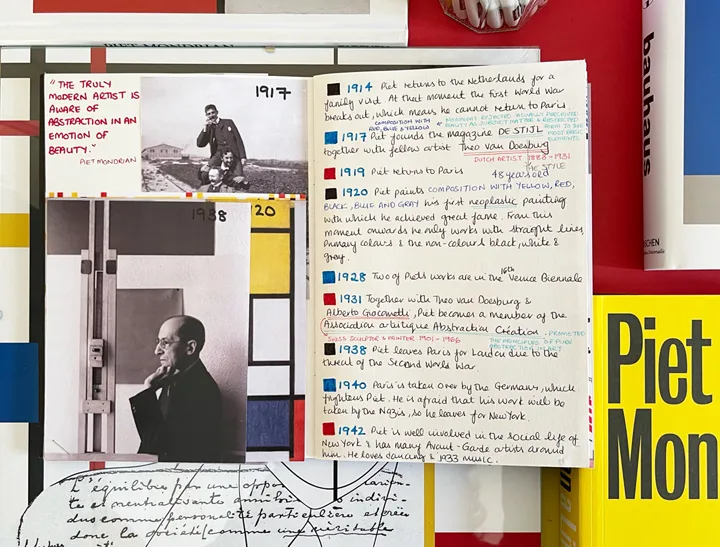 PIET MONDRIAN
"THE TRULY
MODERN ARTIST IS
AWARE OF
ABSTRACTION IN AN
EMOTION OF
BEAUTY."
PIET MONDRIAN
1917
1938
20
1914 Piet returns to the Netherlands for a
family visit. At that moment the first World War
breaks out, which means he cannot return to Paris
COMPOSITION WITH
RED, BLUE & YELLOW
1917 Piet founds the magazine DE STIJL
together with fellow artist Theo van Doesburg
DUTCH ARTIST 1883-1931
THE STYLE
1919 Piet returns to Paris
48 years old
1920 Piet paints COMPOSITION WITH YELLOW, RED,
BLACK, BLUE AND GRAY his first neoplastic painting
with which he achieved great fame. From this
moment onwards he only works with straight lines,
primary colours & the non-colours black, white &
grey.
1928 Two of Piet's works are in the 16th Venice Biennale
1931 Together with Theo van Doesburg &
Alberto Giacometti, Piet becomes a member of the
Association artistique Abstraction Création. PROMOTED
SWISS SCULPTOR & PAINTER 1901-1966
THE PRINCIPLES OF PURE
ABSTRACTION IN ART
1938 Piet leaves Paris for London due to the
threat of the Second World War.
1940 Paris is taken over by the Germans, which
frightens Piet. He is afraid that his work will be
taken by the Nazis, so he leaves for New York.
1942 Piet is well involved in the social life of
New York & has many Avant-Garde artists around
him. He loves dancing & 1933 music.
bauhaus
Piet
Mon
L'équilibre par une oppo
te et neutralisante annihi
dus comme personnalité particulière et crée
donc la société comme une véritable